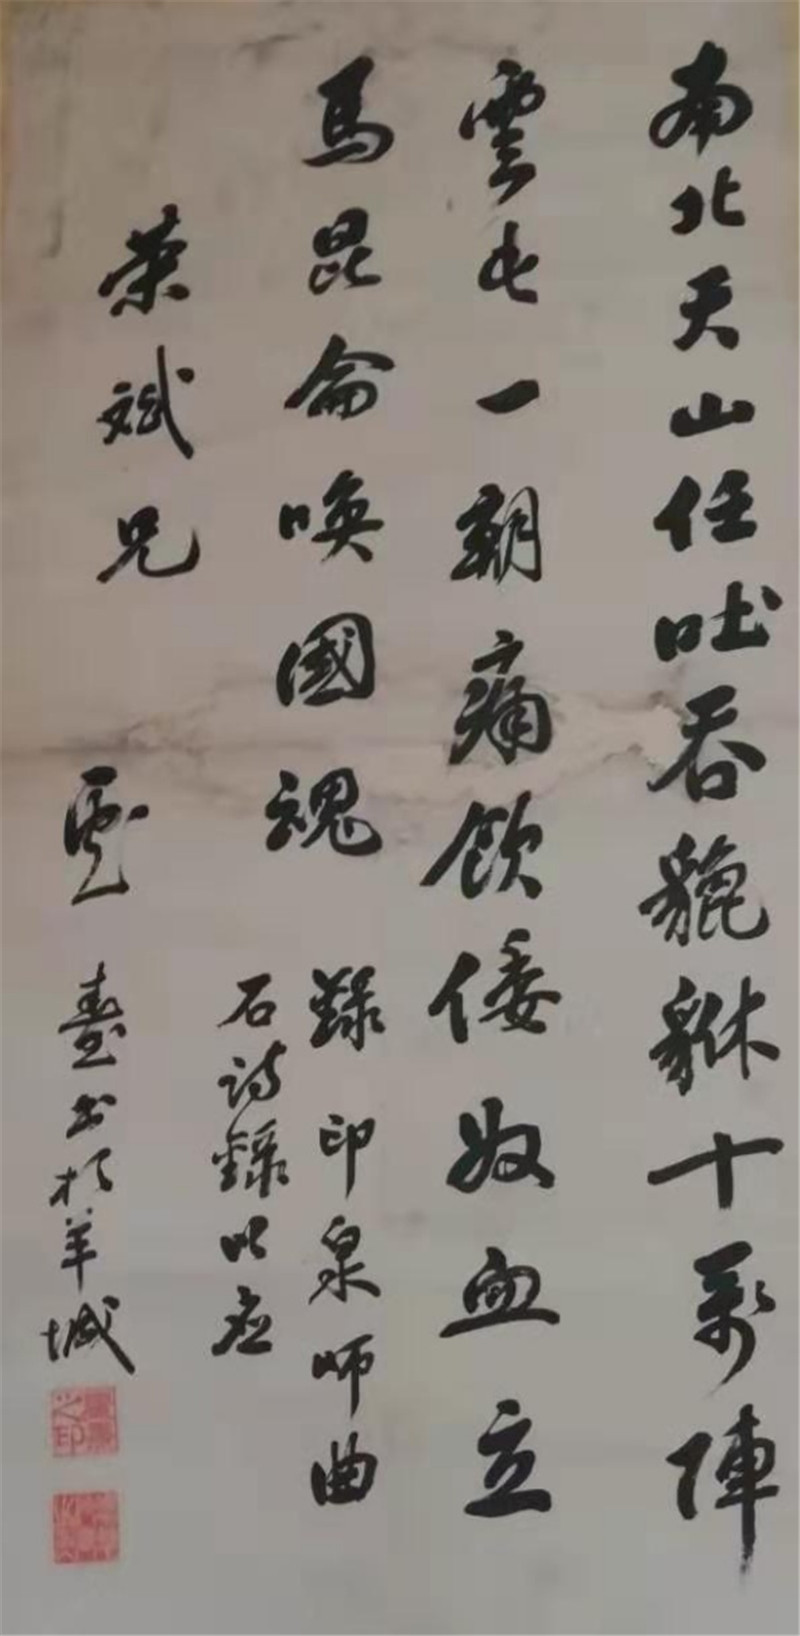 南北天山任吐吞貔貅十萬陣
雲屯一朝痛飲倭奴血立
馬昆侖喚國魂 錄印泉師曲
石詩錄以應
榮斌兄
雲臺書於羊城